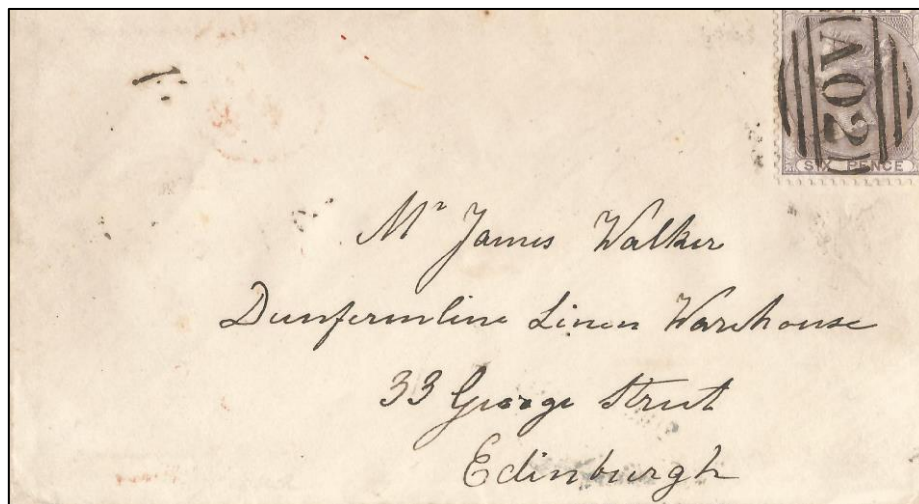 POSTAGE
A02
SIX PENCE
1
Mr James Walker
Dunfermline Linen Warehouse
33 George Street
Edinburgh